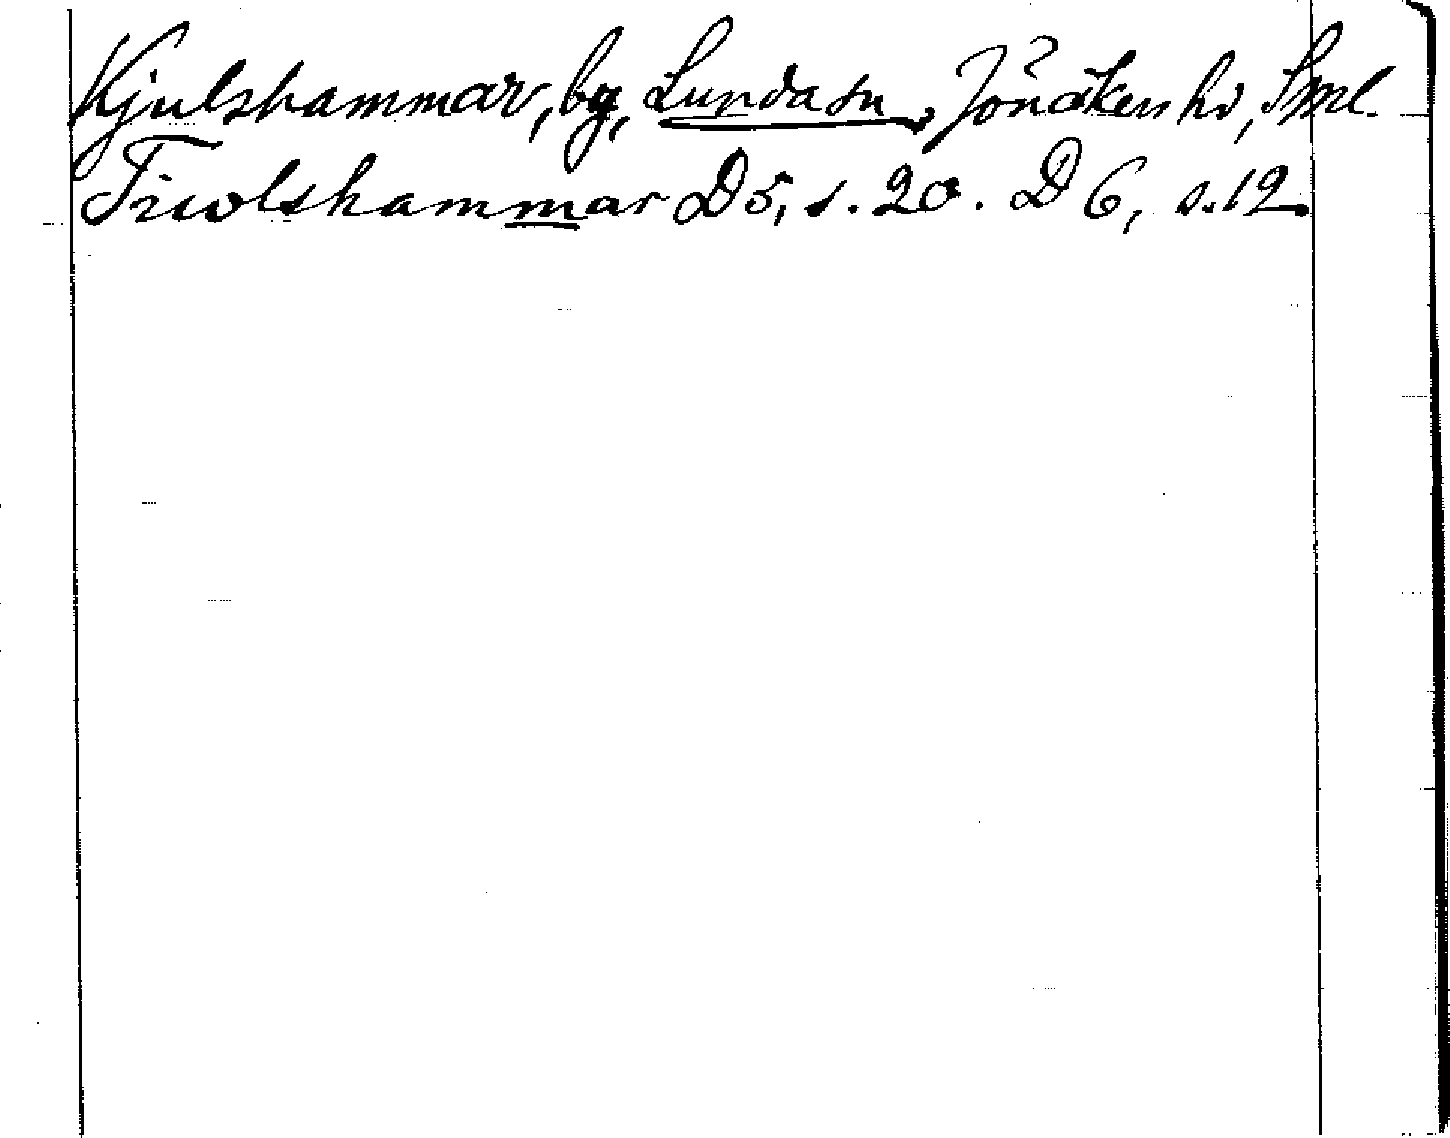 Kjulshammar, by, Lunda sn, Jönåkers hd, Sml.
Tiwolshammar D5, s. 20. D 6, s. 12.